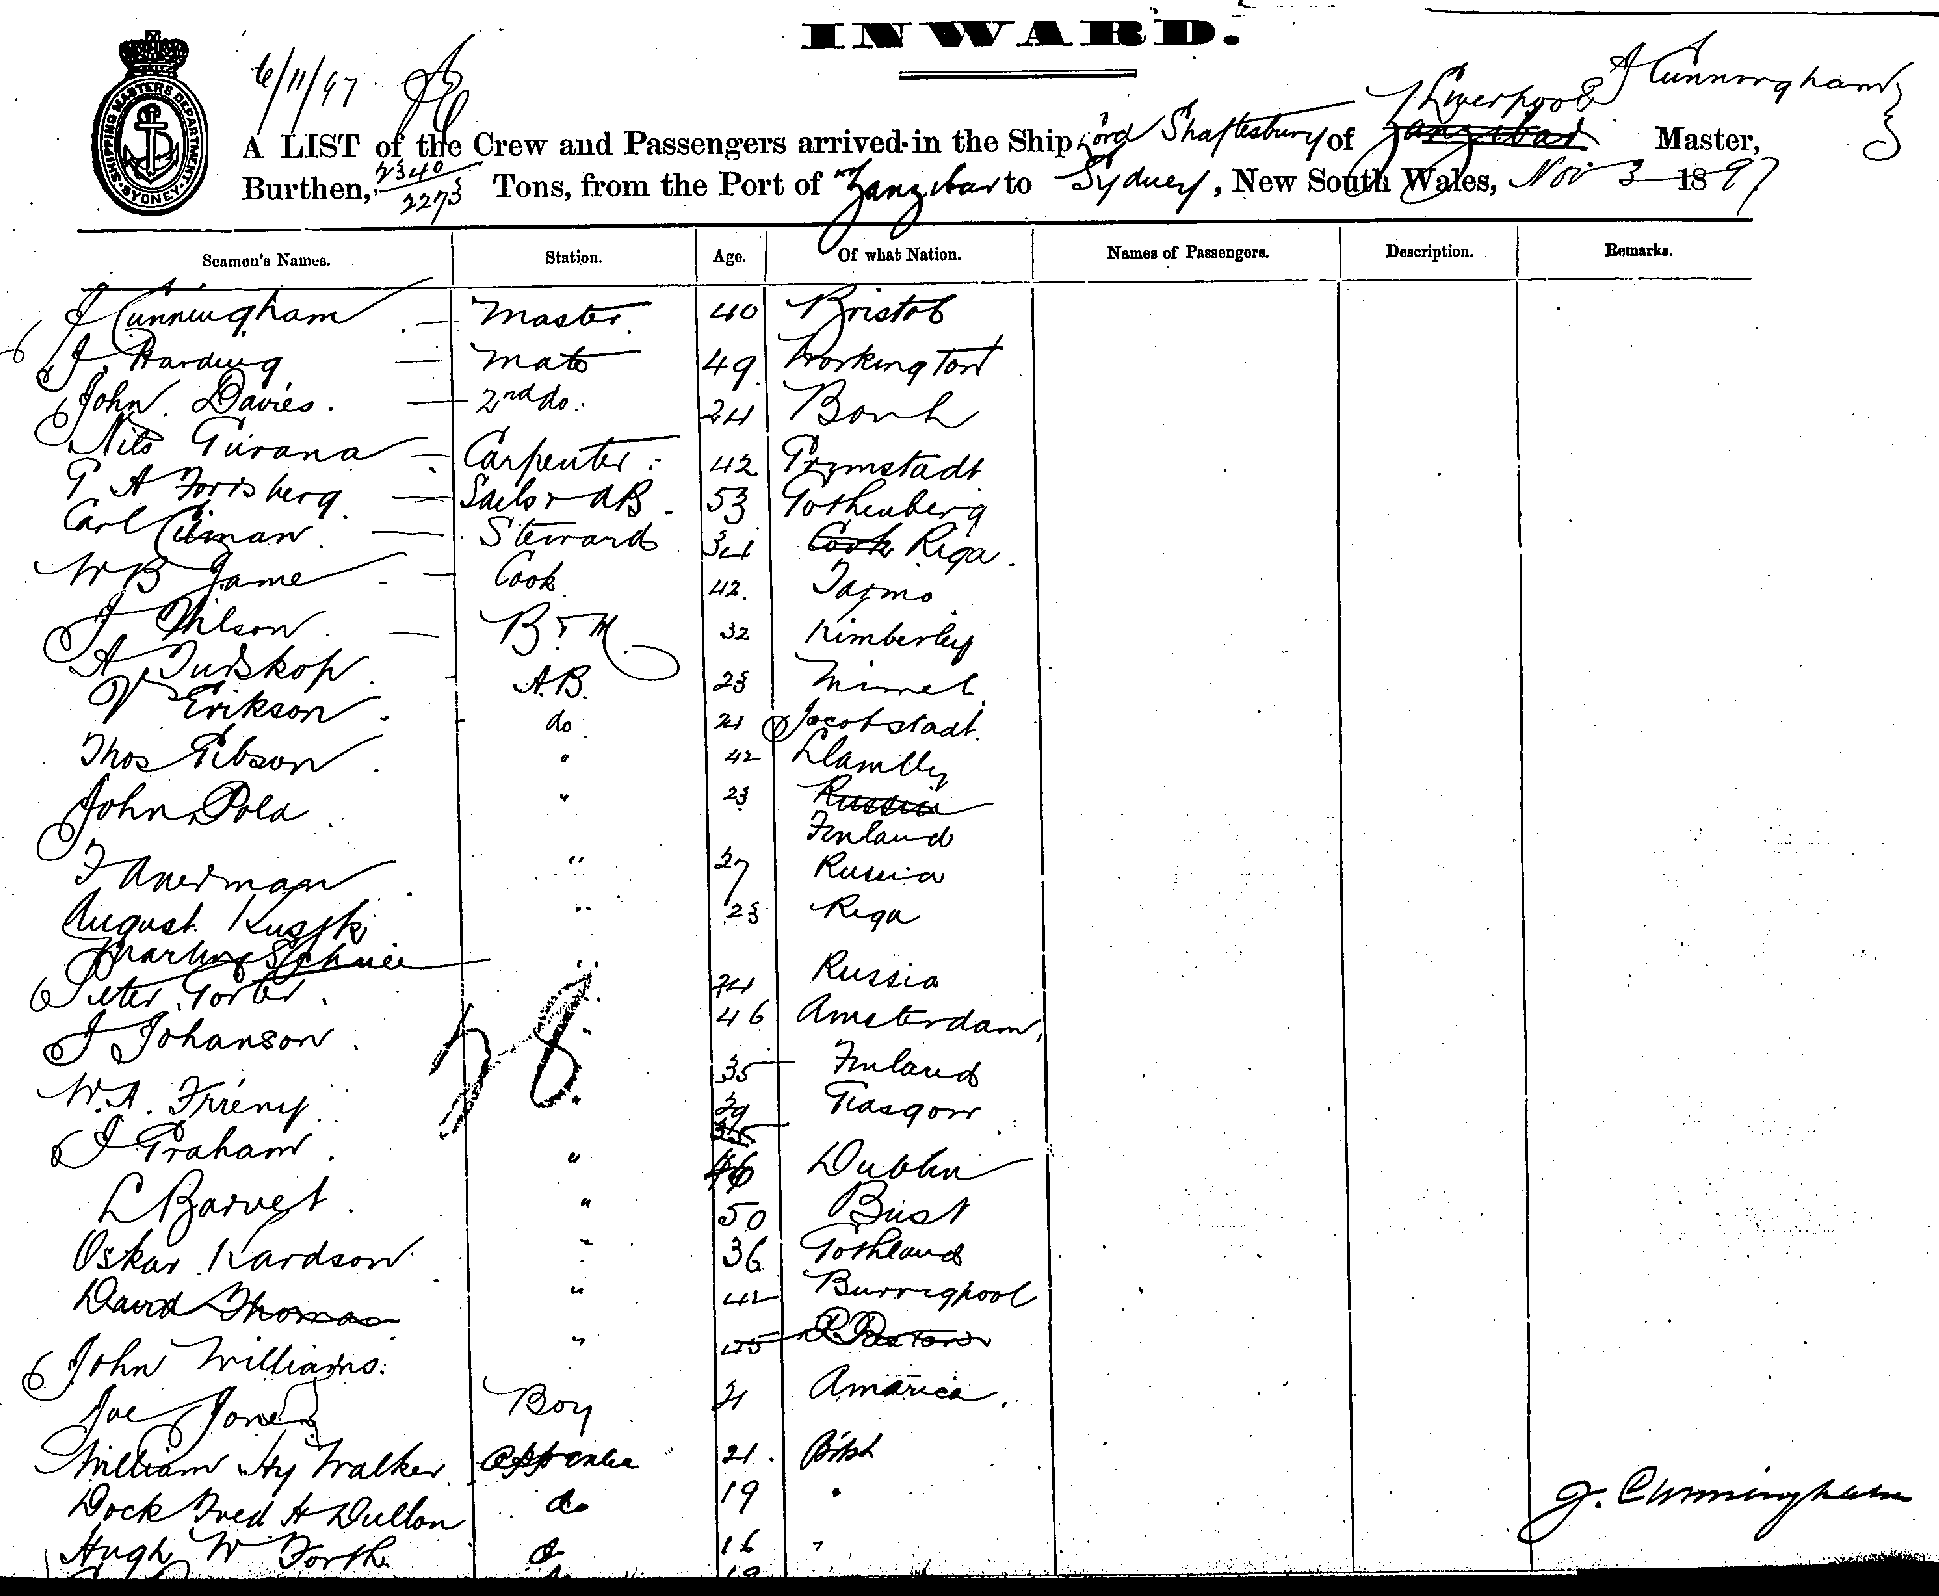 INWARD.
6/11/97
J Cunningham
Liverpool
A LIST of the Crew and Passengers arrived in the Ship Lord Shaftesbury of Zanzibar Master,
Burthen, 2340/2273 Tons, from the Port of Zanzibar to Sydney, New South Wales, Nov 3 1897
SHIPPING MASTERS DEPARTMENT SYDNEY
Seamen's Names. Station. Age. Of what Nation. Names of Passengers. Description. Remarks.
J Cunningham Master 40 Bristol
J. Harding Mate 49 Workington
John Davies. 2nd do. 24
Carpenter 42
Sailor AB 53 Gothenberg
Carl Steward 34 Cook Riga
W B Jame Cook 42.
J Wilson B & M 32 Kimberley
A A.B. 23
V Erikson do 21 Jacobstadt
Thos Gibson " 42
John Pola " 23 Russia
Finland
" 27 Russia
August " 23 Riga
" 24 Russia
Peter " 46 Amsterdam
J Johanson 35 Finland
W. A. 29 Glasgow
35
J Graham " 46 Dublin
L " 50
Oskar Kardson " 36 Gothland
David Thomas "
John Williams. "
28
Joe Jones Boy 21 America.
William Hy Walker Apprentice 21. Britsh
Dock Fred H Dullon do 19 "
Hugh W Forth do 16 "
J. Cunningham